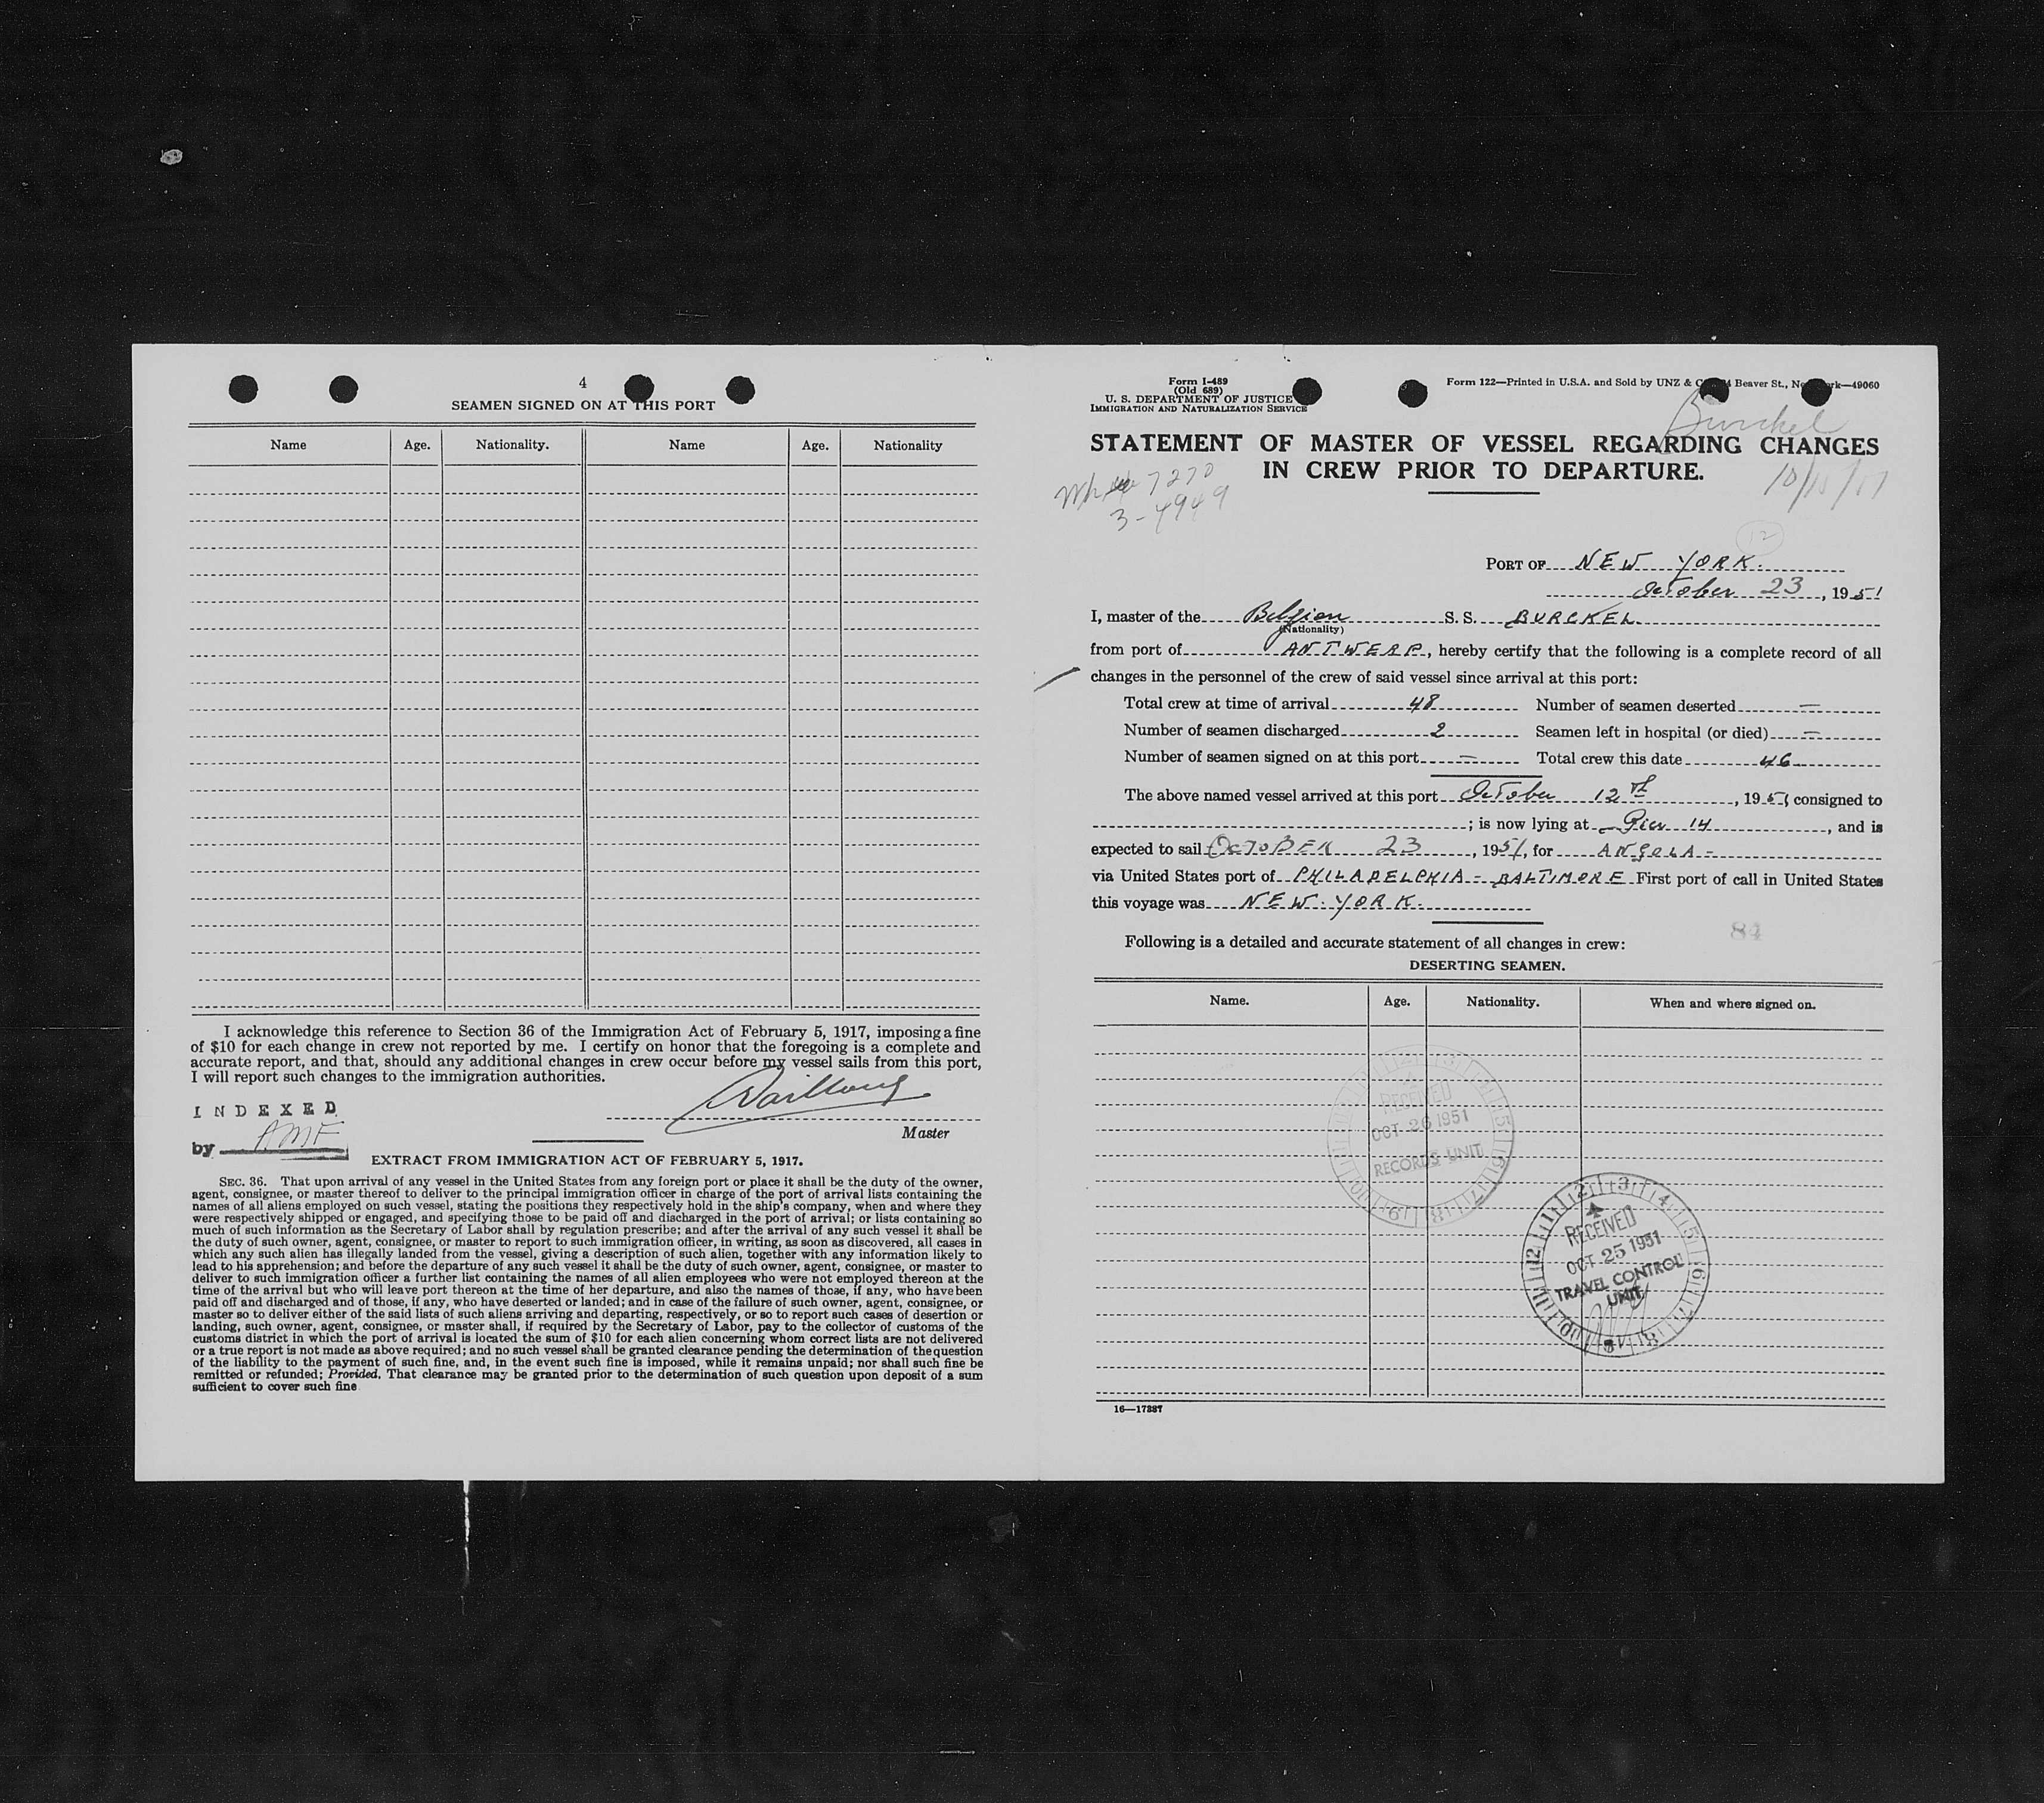 4
SEAMEN SIGNED ON AT THIS PORT
Name Age. Nationality. Name Age. Nationality
I acknowledge this reference to Section 36 of the Immigration Act of February 5, 1917, imposing a fine
of $10 for each change in crew not reported by me. I certify on honor that the foregoing is a complete and
accurate report, and that, should any additional changes in crew occur before my vessel sails from this port,
I will report such changes to the immigration authorities.
INDEXED
by AMF
Master
EXTRACT FROM IMMIGRATION ACT OF FEBRUARY 5, 1917.
SEC. 36. That upon arrival of any vessel in the United States from any foreign port or place it shall be the duty of the owner,
agent, consignee, or master thereof to deliver to the principal immigration officer in charge of the port of arrival lists containing the
names of all aliens employed on such vessel, stating the positions they respectively hold in the ship's company, when and where they
were respectively shipped or engaged, and specifying those to be paid off and discharged in the port of arrival; or lists containing so
much of such information as the Secretary of Labor shall by regulation prescribe; and after the arrival of any such vessel it shall be
the duty of such owner, agent, consignee, or master to report to such immigration officer, in writing, as soon as discovered, all cases in
which any such alien has illegally landed from the vessel, giving a description of such alien, together with any information likely to
lead to his apprehension; and before the departure of any such vessel it shall be the duty of such owner, agent, consignee, or master to
deliver to such immigration officer a further list containing the names of all alien employees who were not employed thereon at the
time of the arrival but who will leave port thereon at the time of her departure, and also the names of those, if any, who have been
paid off and discharged and of those, if any, who have deserted or landed; and in case of the failure of such owner, agent, consignee, or
master so to deliver either of the said lists of such aliens arriving and departing, respectively, or so to report such cases of desertion or
landing, such owner, agent, consignee, or master shall, if required by the Secretary of Labor, pay to the collector of customs of the
customs district in which the port of arrival is located the sum of $10 for each alien concerning whom correct lists are not delivered
or a true report is not made as above required; and no such vessel shall be granted clearance pending the determination of the question
of the liability to the payment of such fine, and, in the event such fine is imposed, while it remains unpaid; nor shall such fine be
remitted or refunded; Provided, That clearance may be granted prior to the determination of such question upon deposit of a sum
sufficient to cover such fine
Form I-489
(Old 689)
U. S. DEPARTMENT OF JUSTICE
IMMIGRATION AND NATURALIZATION SERVICE
Form 122—Printed in U.S.A. and Sold by UNZ & Beaver St., New York—49060
Burckel
STATEMENT OF MASTER OF VESSEL REGARDING CHANGES
IN CREW PRIOR TO DEPARTURE.
7270
3-4949
12
PORT OF NEW YORK.
October 23, 1951
I, master of the Belgian S. S. BURCKEL
(Nationality)
from port of ANTWERP, hereby certify that the following is a complete record of all
changes in the personnel of the crew of said vessel since arrival at this port:
Total crew at time of arrival 48 Number of seamen deserted —
Number of seamen discharged 2 Seamen left in hospital (or died) —
Number of seamen signed on at this port — Total crew this date 46
The above named vessel arrived at this port October 12th, 1951, consigned to
; is now lying at Pier 14, and is
expected to sail OCTOBER 23, 1951, for ANGOLA -
via United States port of PHILADELPHIA - BALTIMORE First port of call in United States
this voyage was NEW. YORK.
84
Following is a detailed and accurate statement of all changes in crew:
DESERTING SEAMEN.
Name. Age. Nationality. When and where signed on.
RECEIVED
OCT 26 1951
RECORDS UNIT
RECEIVED
OCT 25 1951
TRAVEL CONTROL
UNIT
16—17887